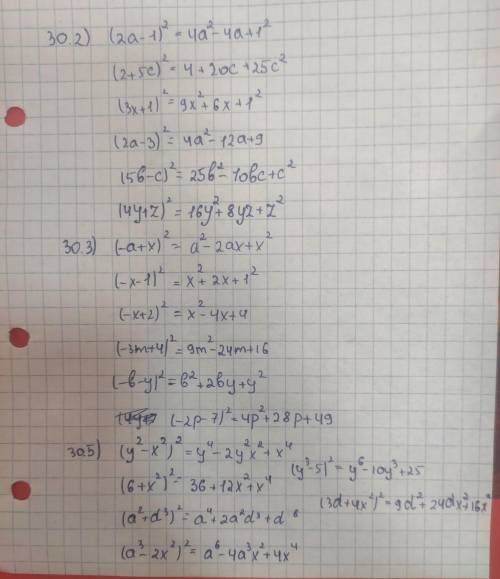 30.2) (2a-1)² = 4a²-4a+1²
(2+5c)² = 4+20c+25c²
(3x+1)² = 9x²+6x+1²
(2a-3)² = 4a²-12a+9
(5в-c)² = 25в²-10вc+c²
(4y+z)² = 16y²+8yz+z²
30.3) (-a+x)² = a²-2ax+x²
(-x-1)² = x²+2x+1²
(-x+2)² = x²-4x+4
(-3m+4)² = 9m²-24m+16
(-в-y)² = в²+2вy+y²
(-2p-7)² = 4p²+28p+49
30.5) (y²-x²)² = y⁴-2y²x²+x⁴
(y³-5)² = y⁶-10y³+25
(6+x²)² = 36+12x²+x⁴
(3d+4x²)² = 9d²+24dx²+16x⁴
(a²+d³)² = a⁴+2a²d³+d⁶
(a³-2x²)² = a⁶-4a³x²+4x⁴